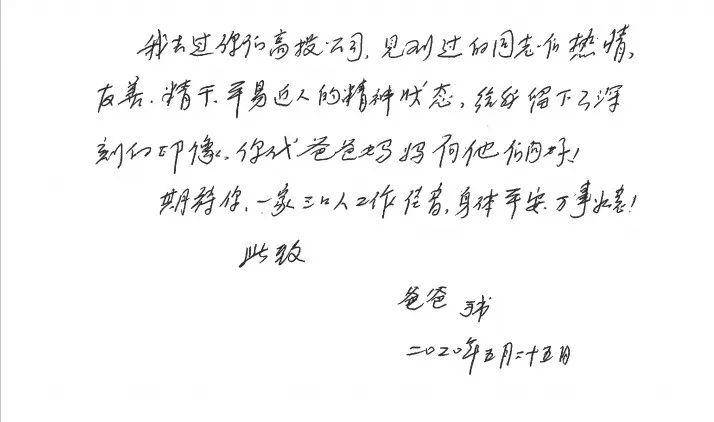 我去过你们高投公司,见到过的同志们热情,
友善、精干、平易近人的精神状态,给我留下了深
刻的印像,你代爸爸妈妈向他们问好!
期待你,一家三口人工作佳音,身体平安、万事如意!
此致
爸爸 手书
二〇二〇年五月二十五日